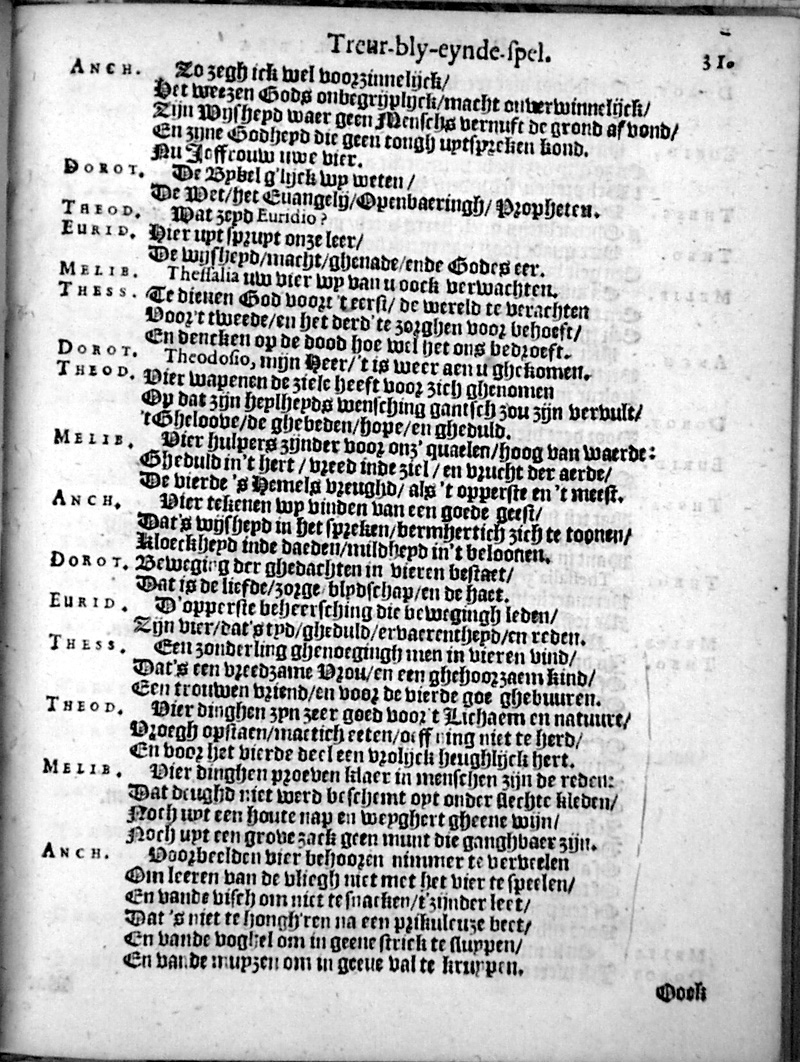 Treur-bly-eynde-spel. 31.
ANCH. Zo zegh ick wel voorzinnelijck/
Het weezen Gods onbegrijplijck/macht onverwinnelijck/
Zijn Wijsheyd waer geen Menschs vernuft de grond af vond/
En zijne Godheyd die geen tongh uytspreken kond.
Nu Joffrouw uwe vier.
DOROT. De Bybel g'lijck wy weten/
De Wet/het Euangely/Openbaeringh/Propheten.
THEOD. Wat zeyd Euridio?
EURID. Hier uyt spruyt onze leer/
De wijsheyd/macht/ghenade/ende Godes eer.
MELIB. Thessalia uw vier wy van u oock verwachten.
THESS. Te dienen God voor 't eerst/ de wereld te verachten
Voor't tweede/en het derd' te zorghen voor behoeft/
En dencken op de dood hoe wel het ons bedroeft.
DOROT. Theodosio, mijn Heer/'t is weer aen u ghekomen.
THEOD. Vier wapenen de ziele heeft voor zich ghenomen
Op dat zijn heylheyds wensching gantsch zou zijn vervult/
't Gheloove/de ghebeden/hope/en gheduld.
MELIB. Vier hulpers zijnder voor onz' quaelen/hoog van waerde:
Gheduld in't hert/vreed inde ziel/en vrucht der aerde/
De vierde 's Hemels vreughd/als 't opperste en 't meest.
ANCH. Vier tekenen wy vinden van een goede geest/
Dat's wijsheyd in het spreken/bermhertich zich te toonen/
Kloeckheyd inde daeden/mildheyd in't beloonen.
DOROT. Beweging der ghedachten in vieren bestaet/
Dat is de liefde/zorge/blydschap/en de haet.
EURID. D'opperste beheersching die bewegingh leden/
Zijn vier/dat's tyd/gheduld/ervaerentheyd/en reden.
THESS. Een zonderling ghenoegingh men in vieren vind/
Dat's een vreedzame Vrou/en een ghehoorzaem kind/
Een trouwen vriend/en voor de vierde goe ghebuuren.
THEOD. Vier dinghen zyn zeer goed voor't Lichaem en natuure/
Vroegh opstaen/maetich eeten/oeffning niet te herd/
En voor het vierde deel een vrolijck heughlijck hert.
MELIB. Vier dinghen proeven klaer in menschen zijn de reden:
Dat deughd niet werd beschemt oyt onder slechte kleden/
Noch uyt een houte nap en weyghert gheene wijn/
Noch uyt een grove zack geen munt die ganghbaer zijn.
ANCH. Voorbeelden vier behooren nimmer te verveelen
Om leeren van de vliegh niet met het vier te speelen/
En vande visch om niet te snacken/t'zijnder leet/
Dat 's niet te hongh'ren na een prikuleuze beet/
En vande voghel om in geene strick te sluppen/
En vande muyzen om in geene val te kruypen.
Oock